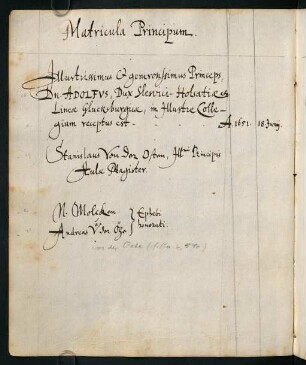 Matricula Principum.
Illustrissimus & generosissimus Princeps,
Dn ADOLFVS, Dux Slesvici-Holsatiæ
Lineæ Glucksburgicæ, in Illustre Colle-
gium receptus est - A. 1651. 18 Junij.
Stanislaus Von der Osten, Illmi Principis
Aulæ Magister.
N. Molcken } Ephebi
Andreas Von der } honorati.